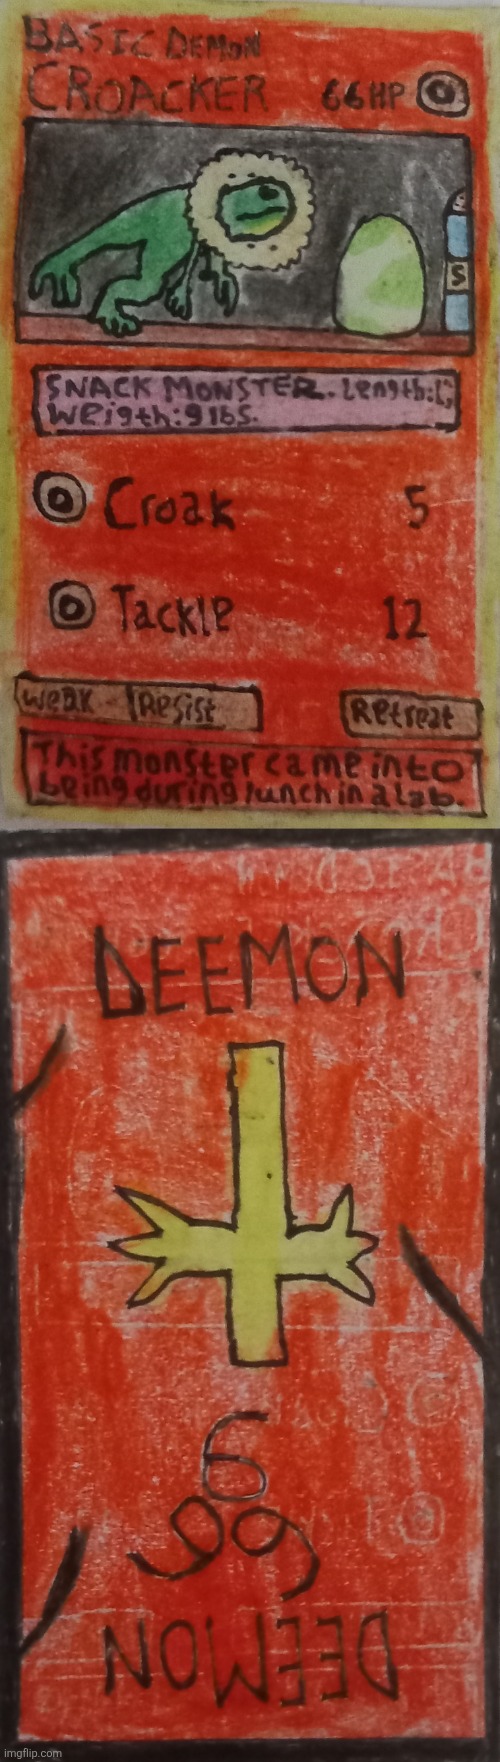 BASIC DEMON
CROACKER 66HP
S
SNACK MONSTER. Length:
Weigth:9 lbs.
Croak 5
Tackle 12
Weak Resist Retreat
This monster came into
being during lunch in a lab.
DEEMON
6
66
DEEMON
imgflip.com